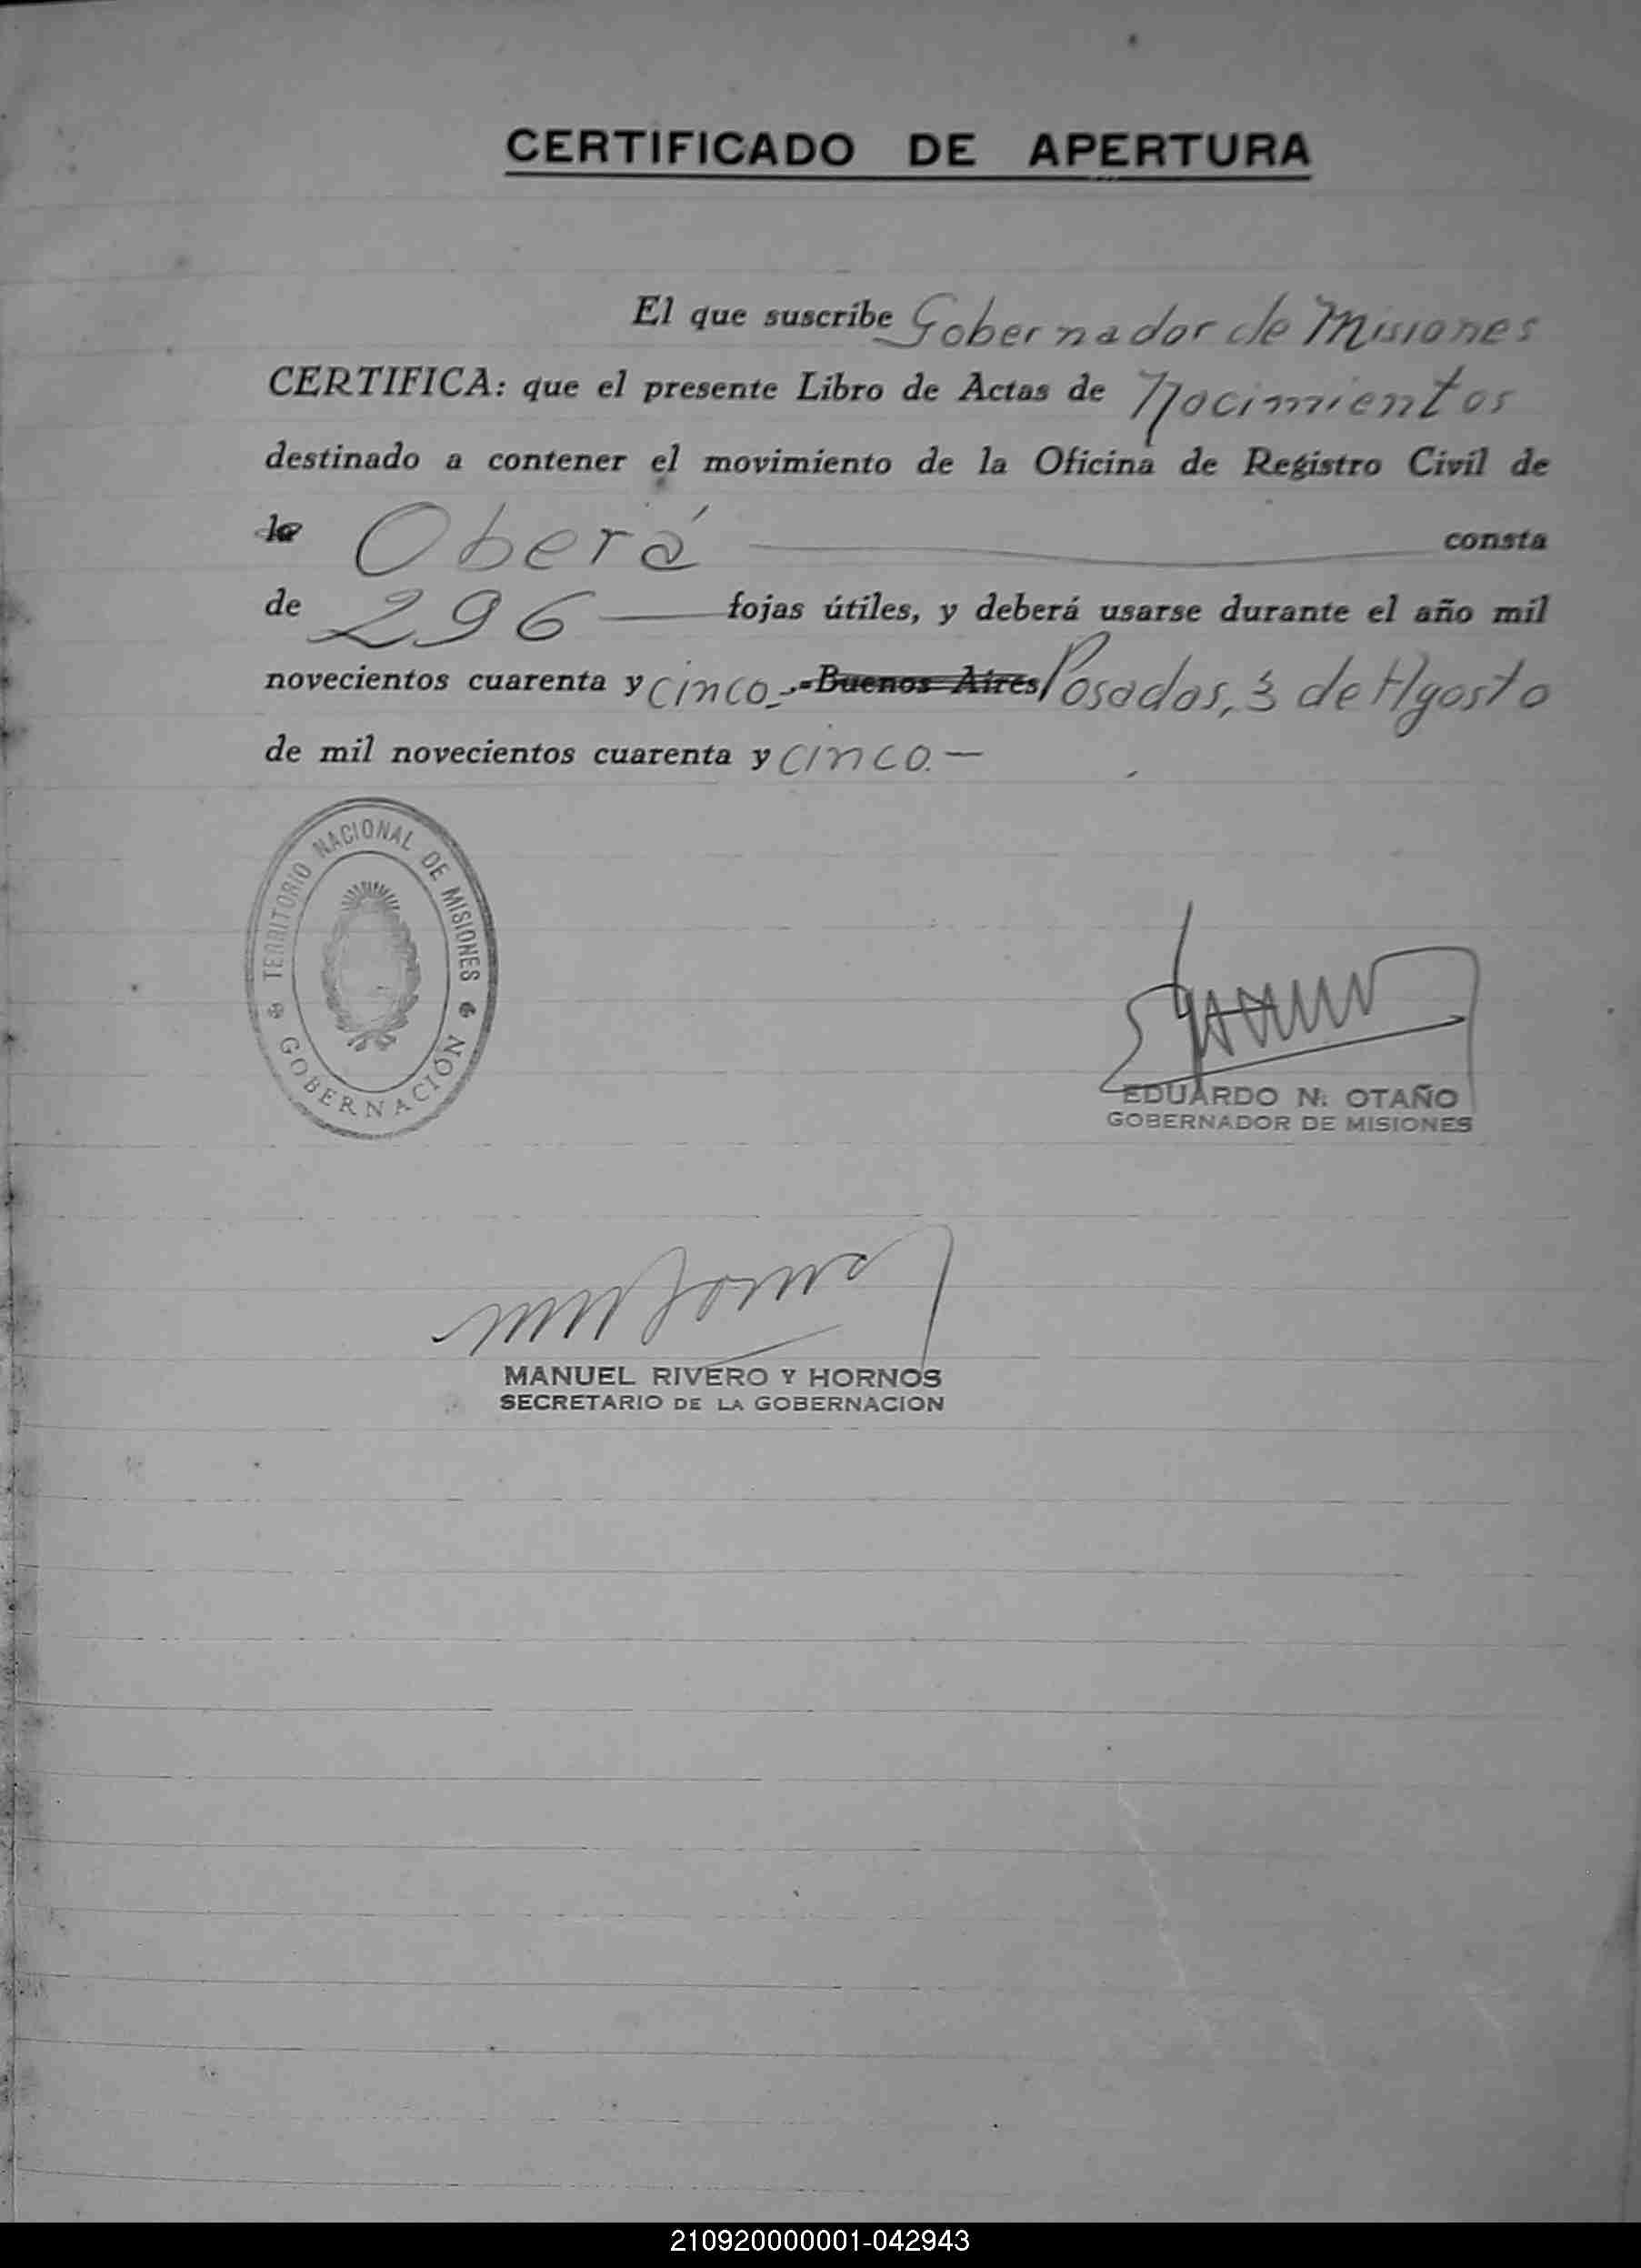 CERTIFICADO DE APERTURA
El que suscribe Gobernador de Misiones
CERTIFICA: que el presente Libro de Actas de Nacimientos
destinado a contener el movimiento de la Oficina de Registro Civil de
la Oberá consta
de 296 fojas útiles, y deberá usarse durante el año mil
novecientos cuarenta y cinco.- Buenos Aires Posadas, 3 de Agosto
de mil novecientos cuarenta y cinco.—
TERRITORIO NACIONAL DE MISIONES
GOBERNACIÓN
EDUARDO N. OTAÑO
GOBERNADOR DE MISIONES
MANUEL RIVERO Y HORNOS
SECRETARIO DE LA GOBERNACION
210920000001-042943